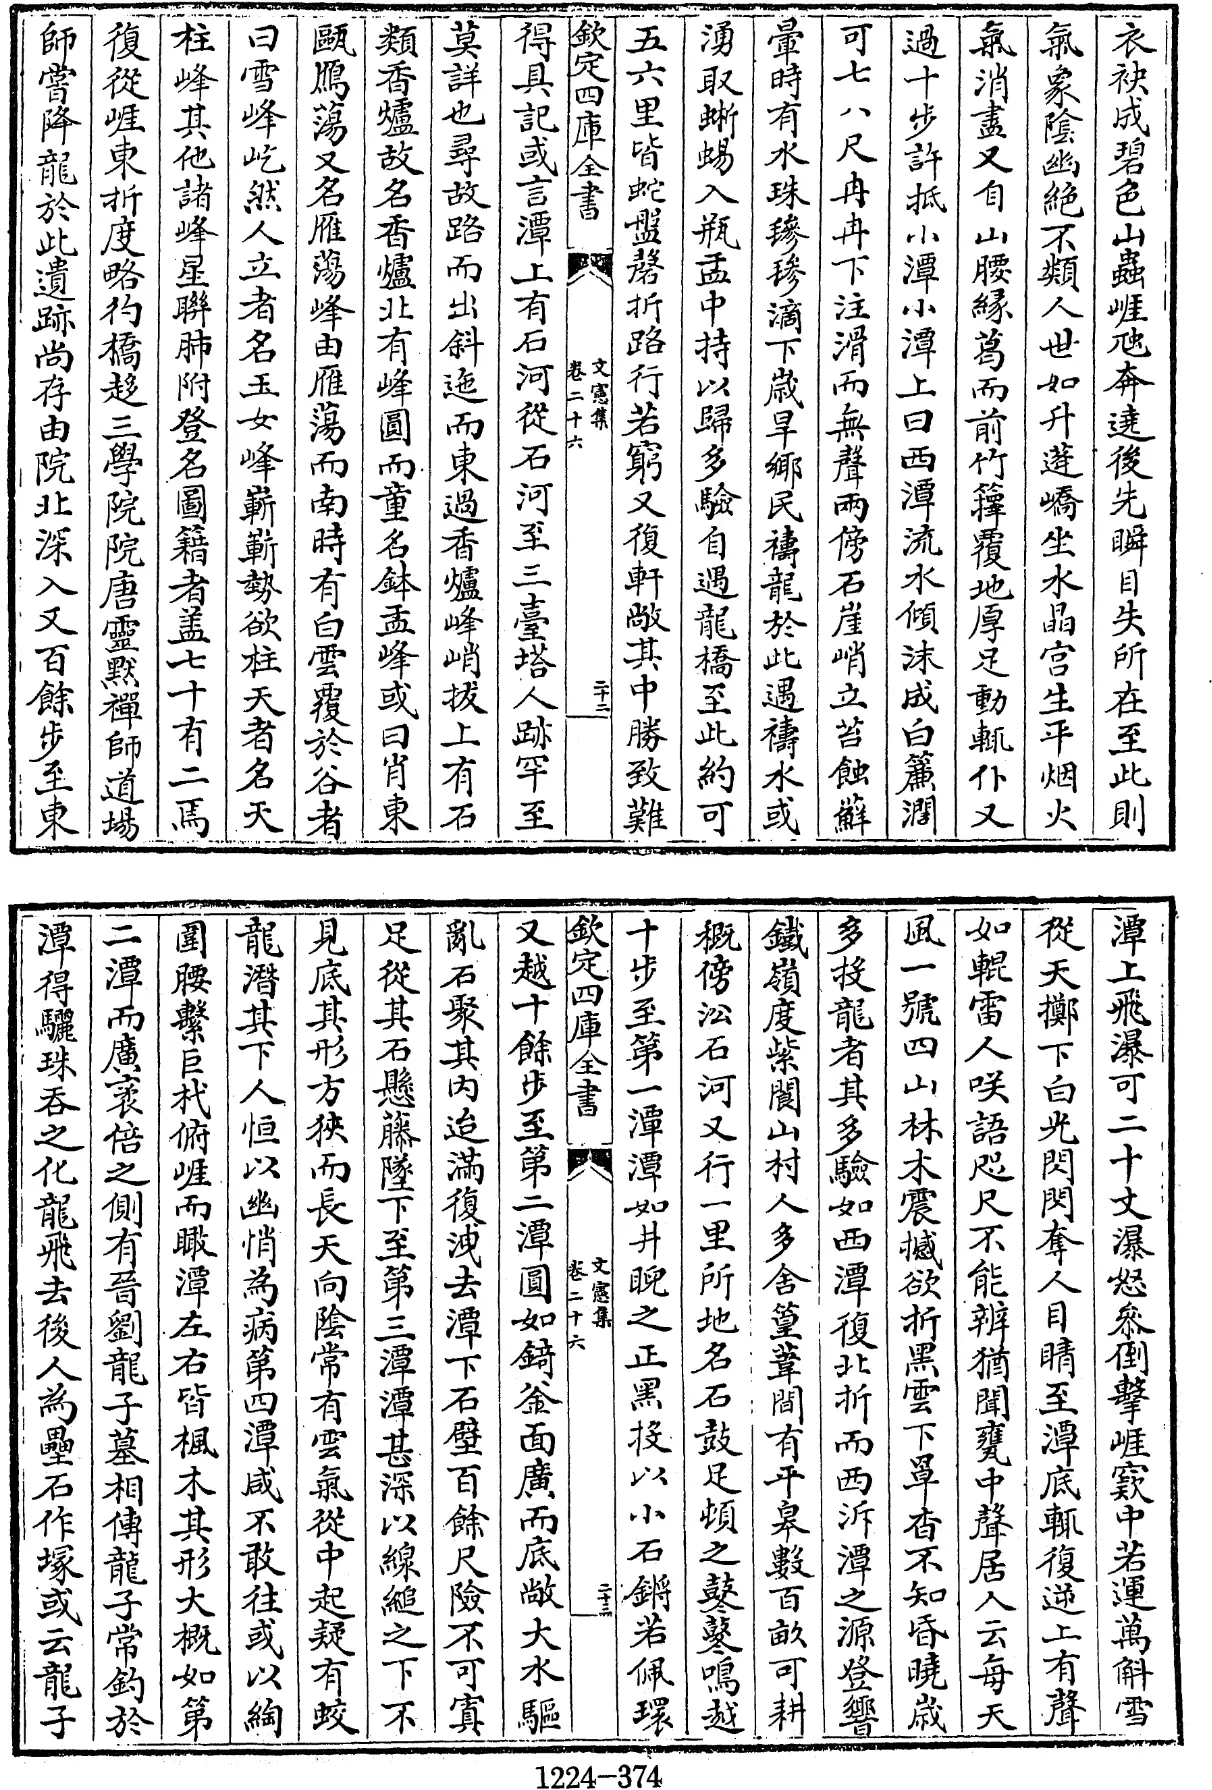 衣袂成碧色山蟲崕虺奔遶後先瞬目失所在至此則
氣象陰幽絕不類人世如升蓬嶠坐水晶宫生平烟火
氣消盡又自山腰緣葛而前竹籜覆地厚足動輒仆又
過十步許抵小潭小潭上曰西潭流水傾沫成白簾濶
可七八尺冉冉下注滑而無聲兩傍石崖峭立苔蝕蘚
暈時有水珠㻸㻸滴下歳旱鄉民禱龍於此遇禱水或
湧取蜥蜴入瓶盂中持以歸多驗自遇龍橋至此約可
五六里皆蛇盤磬折路行若窮又復軒敞其中勝致難
欽定四庫全書
文憲集
卷二十六
二十二
得具記或言潭上有石河從石河至三臺塔人跡罕至
莫詳也尋故路而出斜迤而東過香爐峰峭拔上有石
類香爐故名香爐北有峰圓而童名鉢盂峰或曰肖東
甌鴈蕩又名雁蕩峰由雁蕩而南時有白雲覆於谷者
曰雪峰屹然人立者名玉女峰嶄嶄勢欲柱天者名天
柱峰其他諸峰星聯肺附登名圖籍者盖七十有二焉
復從崕東折度略彴橋趍三學院院唐靈黙禪師道場
師嘗降龍於此遺跡尚存由院北深入又百餘步至東
潭上飛瀑可二十丈瀑怒叅倒擊崕窾中若運萬斛雪
從天擲下白光閃閃奪人目睛至潭底輒復逆上有聲
如輥雷人咲語咫尺不能辨猶聞甕中聲居人云每天
風一號四山林木震撼欲折黑雲下罩杳不知昏曉歳
多投龍者其多驗如西潭復北折而西泝潭之源登響
鐵嶺度紫閬山村人多舍篁葦間有平皋數百畝可耕
概傍㳂石河又行一里所地名石鼓足頓之鼕鼕鳴越
十步至第一潭潭如井睨之正黑投以小石鏘若佩環
欽定四庫全書
文憲集
卷二十六
二十三
又越十餘步至第二潭圓如錡釜面廣而底敞大水驅
亂石聚其内迨滿復洩去潭下石壁百餘尺險不可寘
足從其石懸藤墜下至第三潭潭甚深以線縋之下不
見底其形方狹而長天向陰常有雲氣從中起疑有蛟
龍潛其下人恒以幽悄為病第四潭咸不敢往或以綯
圍腰繫巨杙俯崕而瞰潭左右皆楓木其形大概如第
二潭而廣袤倍之側有晉劉龍子墓相傳龍子常釣於
潭得驪珠吞之化龍飛去後人為壘石作塚或云龍子
1224-374